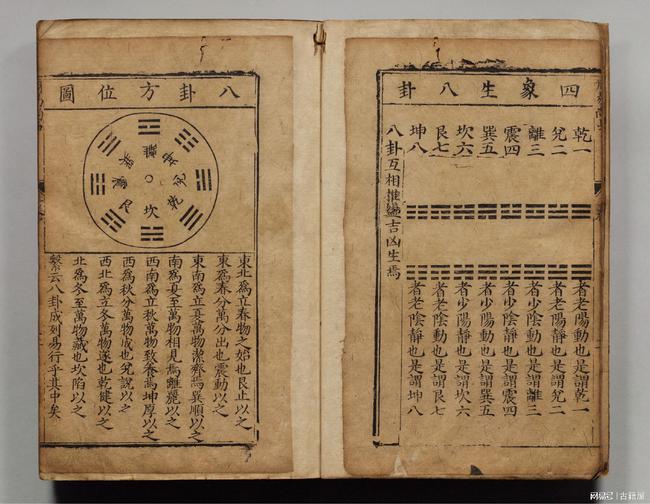 四象生八卦
乾一
兌二
離三
震四
巽五
坎六
艮七
坤八
者老陽動也是謂乾一
者老陽靜也是謂兌二
者少陰動也是謂離三
者少陰靜也是謂震四
者少陽動也是謂巽五
者少陽靜也是謂坎六
者老陰動也是謂艮七
者老陰靜也是謂坤八
八卦互相推盪吉凶生焉
八卦方位圖
離
坤
兌
乾
坎
艮
震
巽
東北爲立春物之始也艮止以之
東爲春分萬分出也震動以之
東南爲立夏萬物潔齊焉巽順以之
南爲夏至萬物相見焉離麗以之
西南爲立秋萬物致養焉坤厚以之
西爲秋分萬物成也兌說以之
西北爲立冬萬物遂也乾健以之
北爲冬至萬物藏也坎陷以之
繫云八卦成列易行乎其中矣
网易号 | 古籍屋